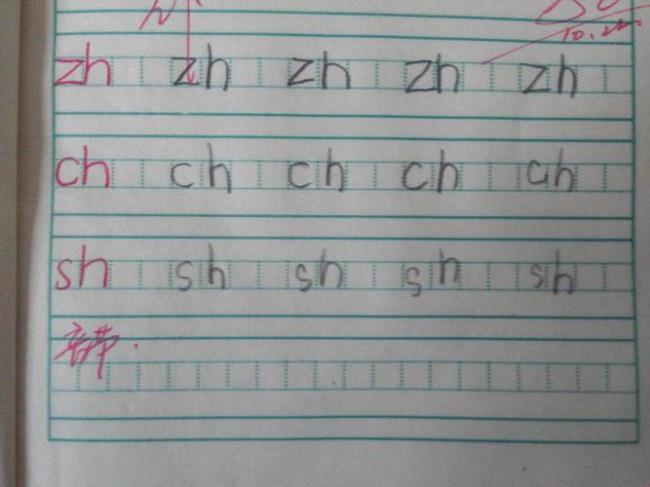 zh zh zh zh zh
ch ch ch ch ch
sh sh sh sh sh